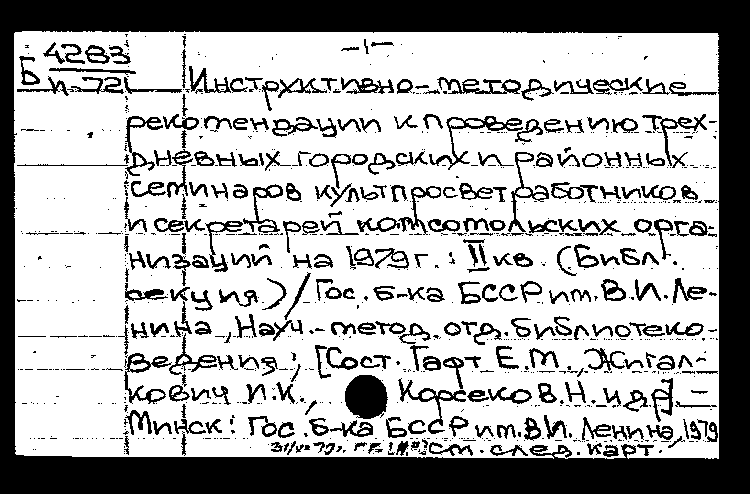 -1-
Б 4283
п-721
Инструктивно-методические
рекомендации к проведению трех-
дневных городских и районных
семинаров культпросветработников
и секретарей комсомольских орга-
низаций на 1979 г. : II кв. (Библ.
секция) / Гос. б-ка БССР им. В.И. Ле-
нина, Науч.-метод. отд. библиотеко-
ведения ; [Сост. Гафт Е.М., Жигал-
кович И.К., Корсеко В.Н. и др]. -
Минск : Гос. б-ка БССР им. В.И. Ленина, 1979
см. след. карт.